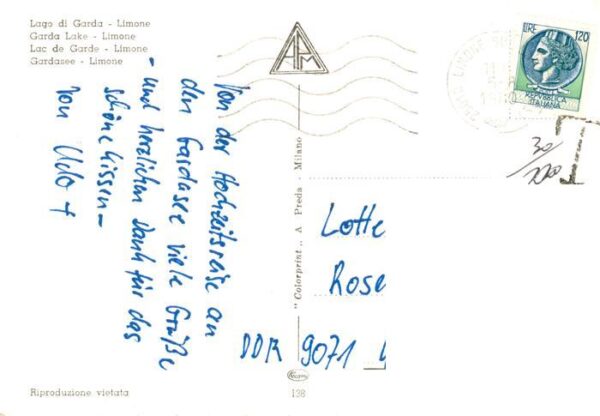 Lago di Garda - Limone
Garda Lake - Limone
Lac de Garde - Limone
Gardasee - Limone
LIRE 120
REPVBBLICA
ITALIANA
LIMONE
30/
Von der Hochzeitsreise an
den Gardasee viele Grüße
- und herzlichen Dank für das
schöne Kissen -
Von Udo +
"Colorprint" A Preda - Milano
Lotte
Rose
DDR 9071
Riproduzione vietata
138